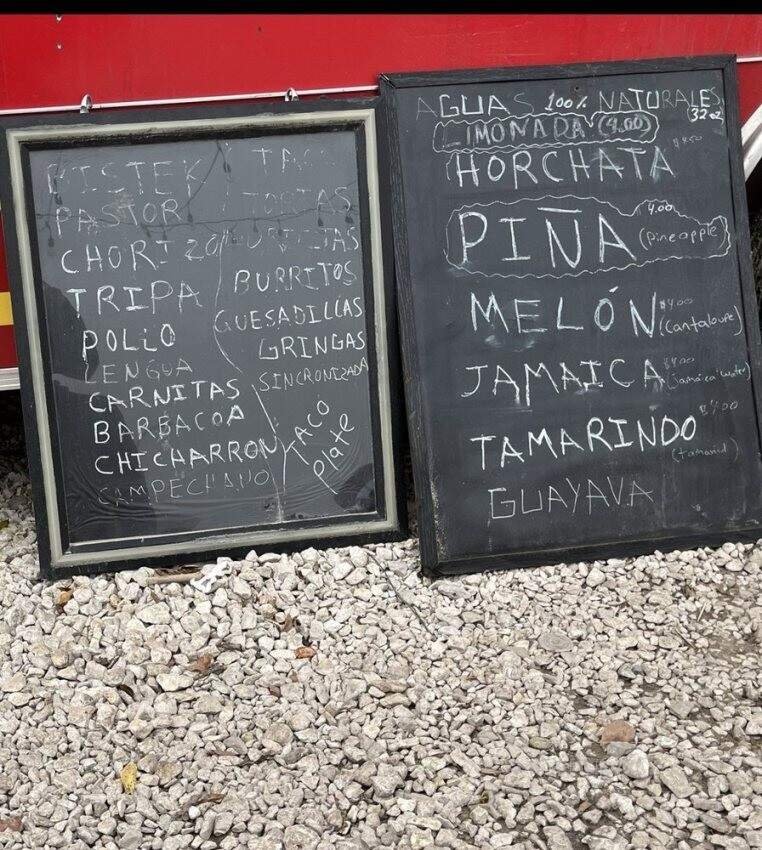 BISTEK
PASTOR
CHORIZO
TRIPA
POLLO
LENGUA
CARNITAS
BARBACOA
CHICHARRON
CAMPECHANO
BURRITOS
QUESADILLAS
GRINGAS
SINCRONIZADA
TACO
Plate
AGUAS 100% NATURALES
32oz
LIMONADA (4.00)
HORCHATA
PIÑA 4.00 (pineapple)
MELÓN $4.00 (Cantaloupe)
JAMAICA $4.00 (Jamaica water)
TAMARINDO $4.00
GUAYAVA